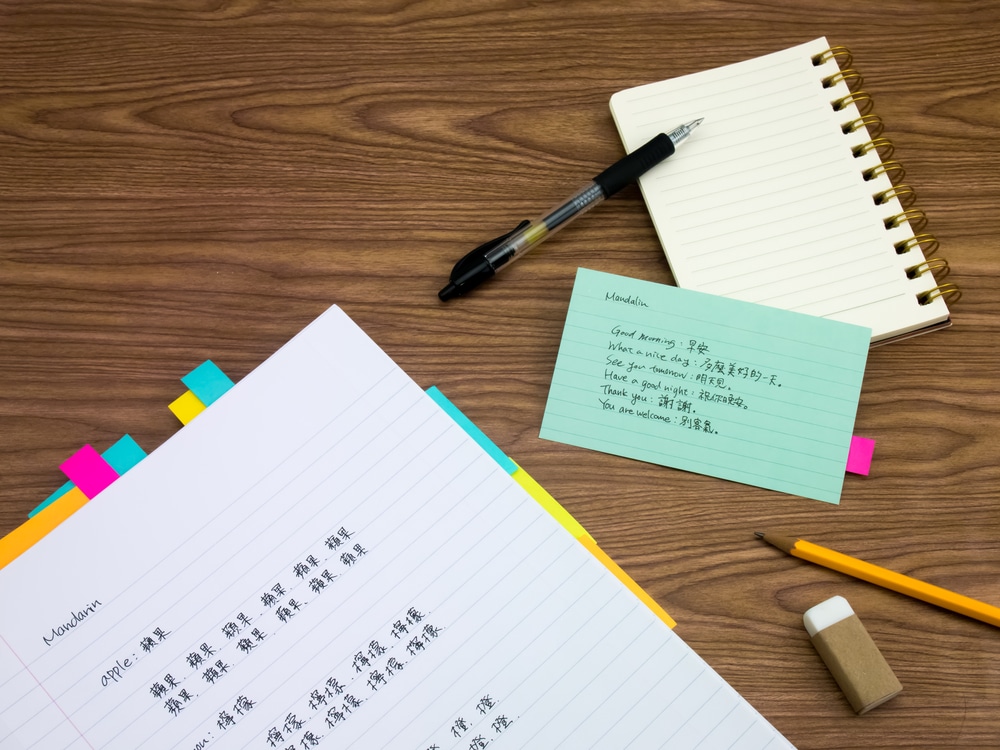 Mandalin
Good morning : 早安
What a nice day : 多麼美好的一天。
See you tomorrow : 明天見。
Have a good night : 祝你晚安。
Thank you : 謝謝。
You are welcome : 別客氣。
Mandarin
apple : 蘋果
蘋果. 蘋果. 蘋果. 蘋果. 蘋果. 蘋果
蘋果. 蘋果. 蘋果. 蘋果. 蘋果. 蘋果
: 檸檬
檸檬. 檸檬. 檸檬. 檸檬.
檸檬. 檸檬. 檸檬. 檸檬.
橙. 橙.
橙. 橙.